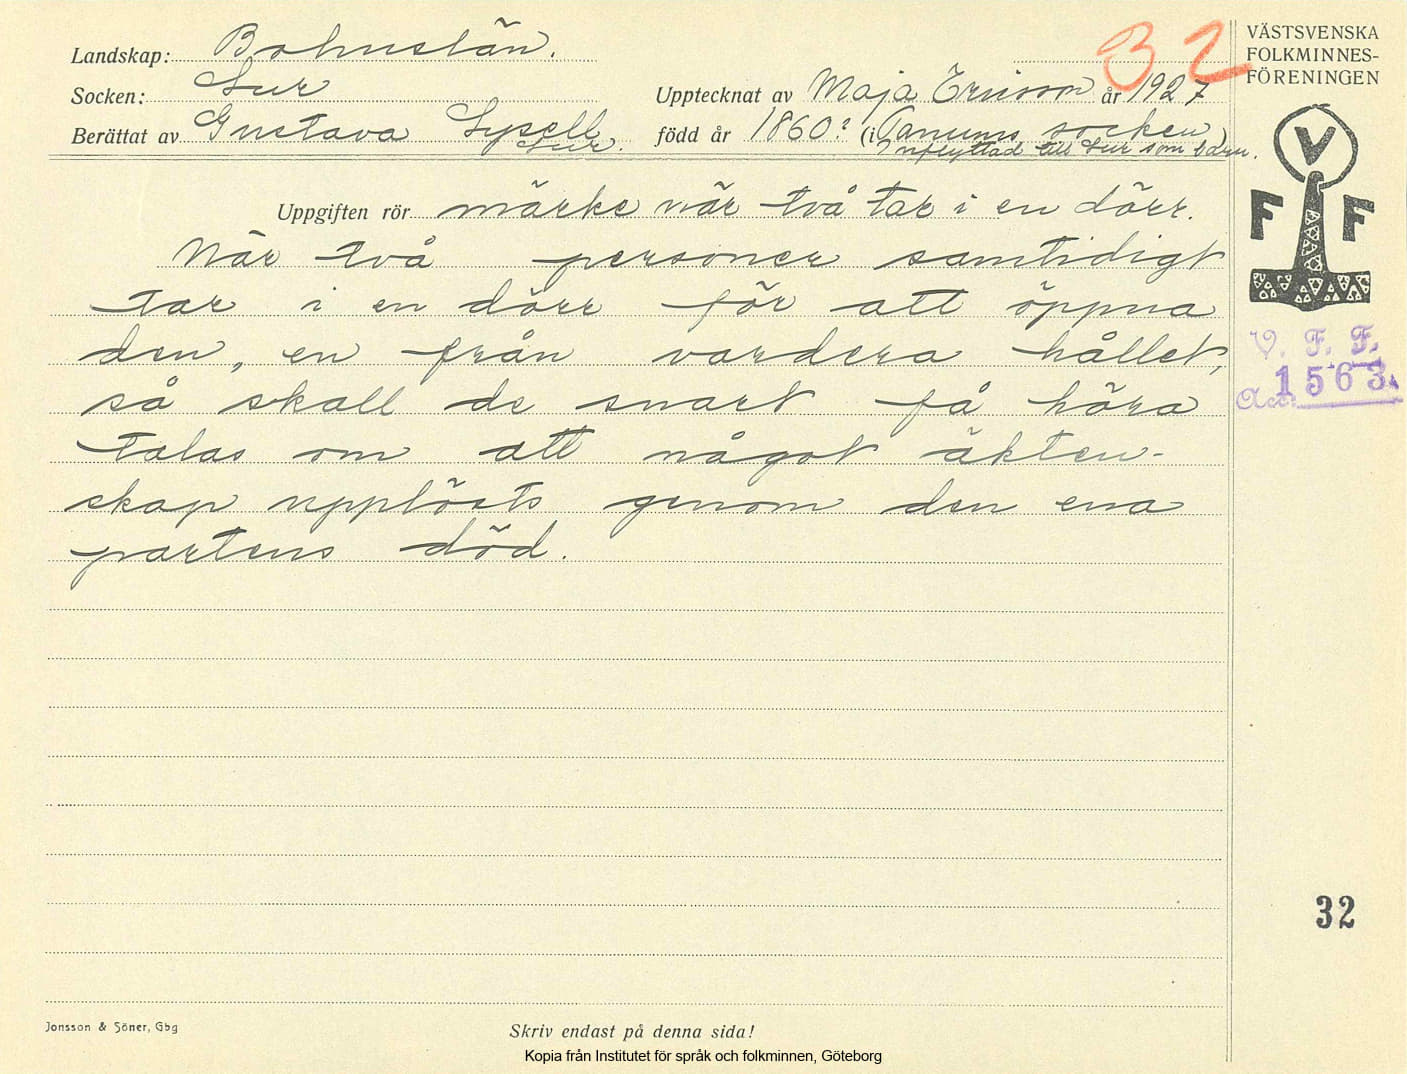 32
Landskap: Bohuslän.
Socken: Lur
Berättat av Gustava Lysell
Lur.
Upptecknat av Maja Ericson år 1927
född år 1860? (i Tanums socken)
inflyttad till Lur som barn.
VÄSTSVENSKA
FOLKMINNES-
FÖRENINGEN
V
F F
V. F. F.
Acc. 1563
Uppgiften rör märke när två tar i en dörr.
När två personer samtidigt
tar i en dörr för att öppna
den, en från vardera hållet,
så skall de snart få höra
talas om att något äkten-
skap upplösts genom den ena
partens död.
32
Jonsson & Söner, Gbg
Skriv endast på denna sida!
Kopia från Institutet för språk och folkminnen, Göteborg